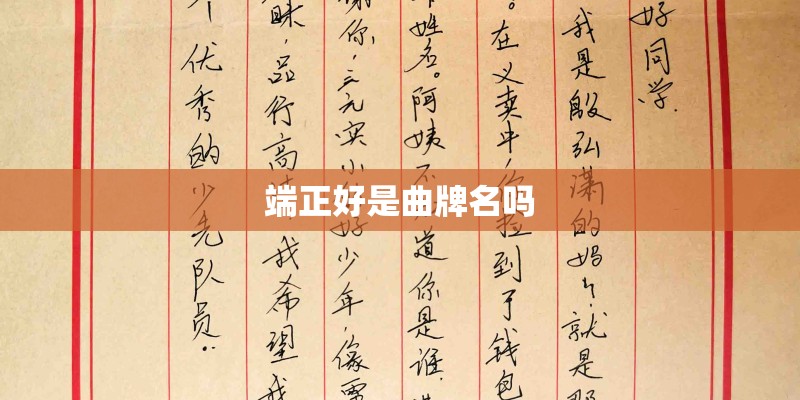 好同学.
我是殷弘潇的妈妈,就是那
。在义卖中,你捡到了钱包
姓名。阿姨不 道你是谁,
谢你,三元实小 好少年,像雷
昧,品行高 我希望我
个优秀的少先队员..
端正好是曲牌名吗